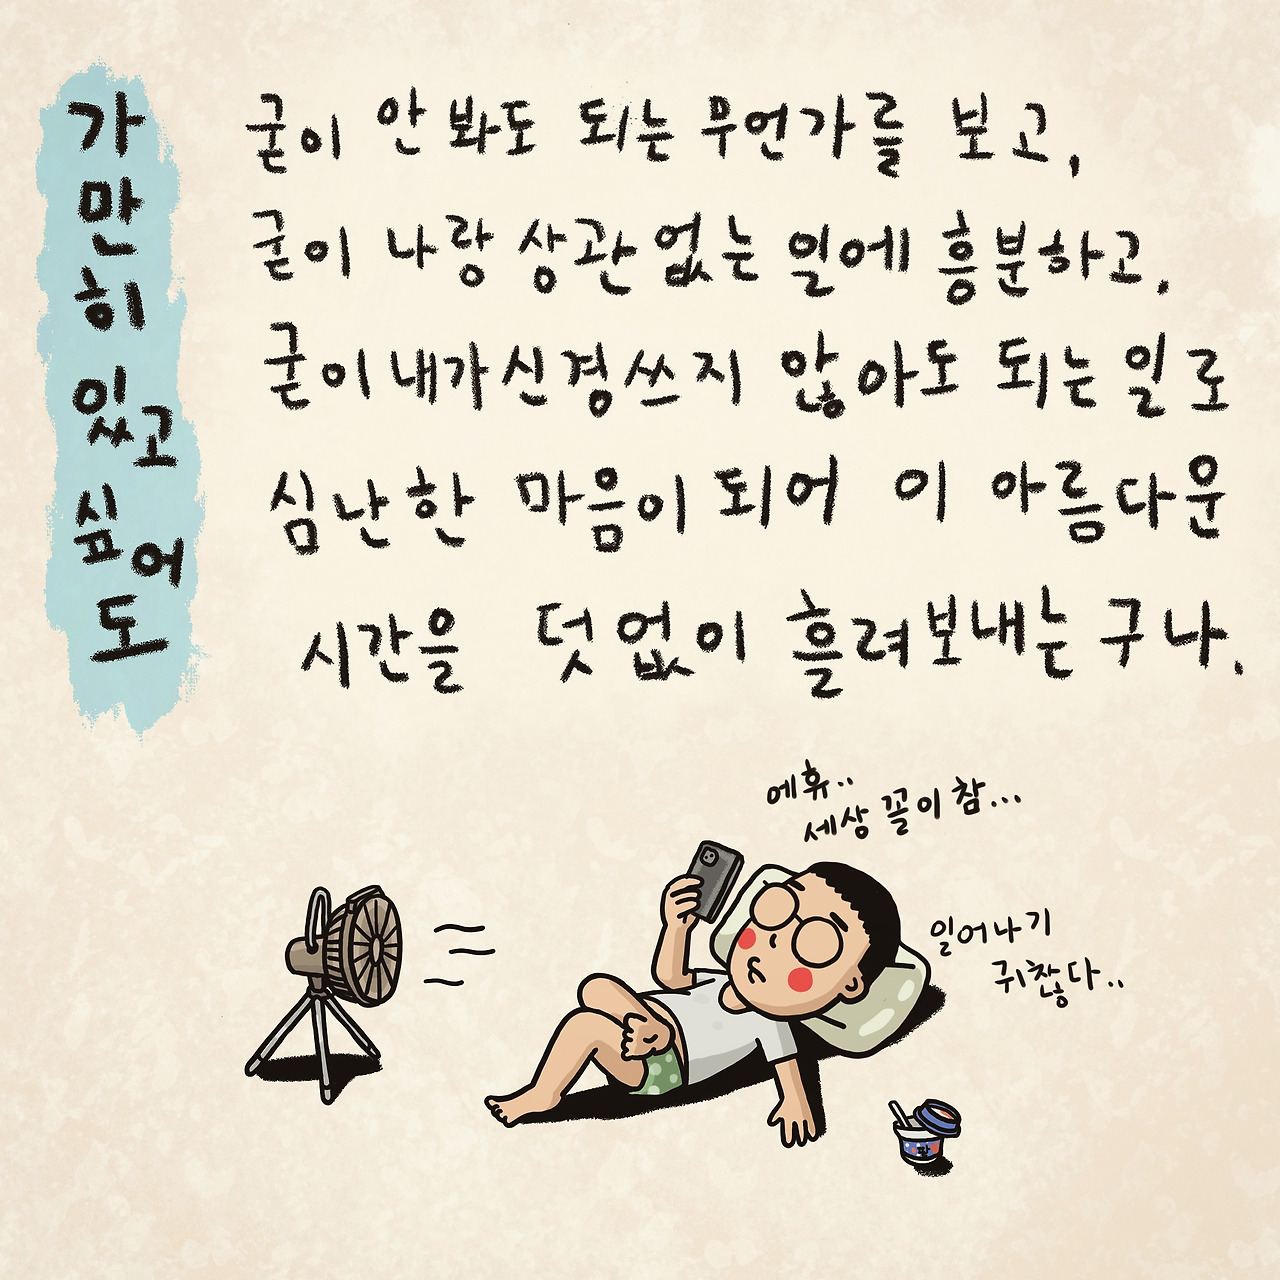 가만히 있고 싶어도
굳이 안 봐도 되는 무언가를 보고,
굳이 나랑 상관없는 일에 흥분하고,
굳이 내가 신경쓰지 않아도 되는 일로
심난한 마음이 되어 이 아름다운
시간을 덧없이 흘려보내는구나.
에휴..
세상 꼴이 참...
일어나기
귀찮다..